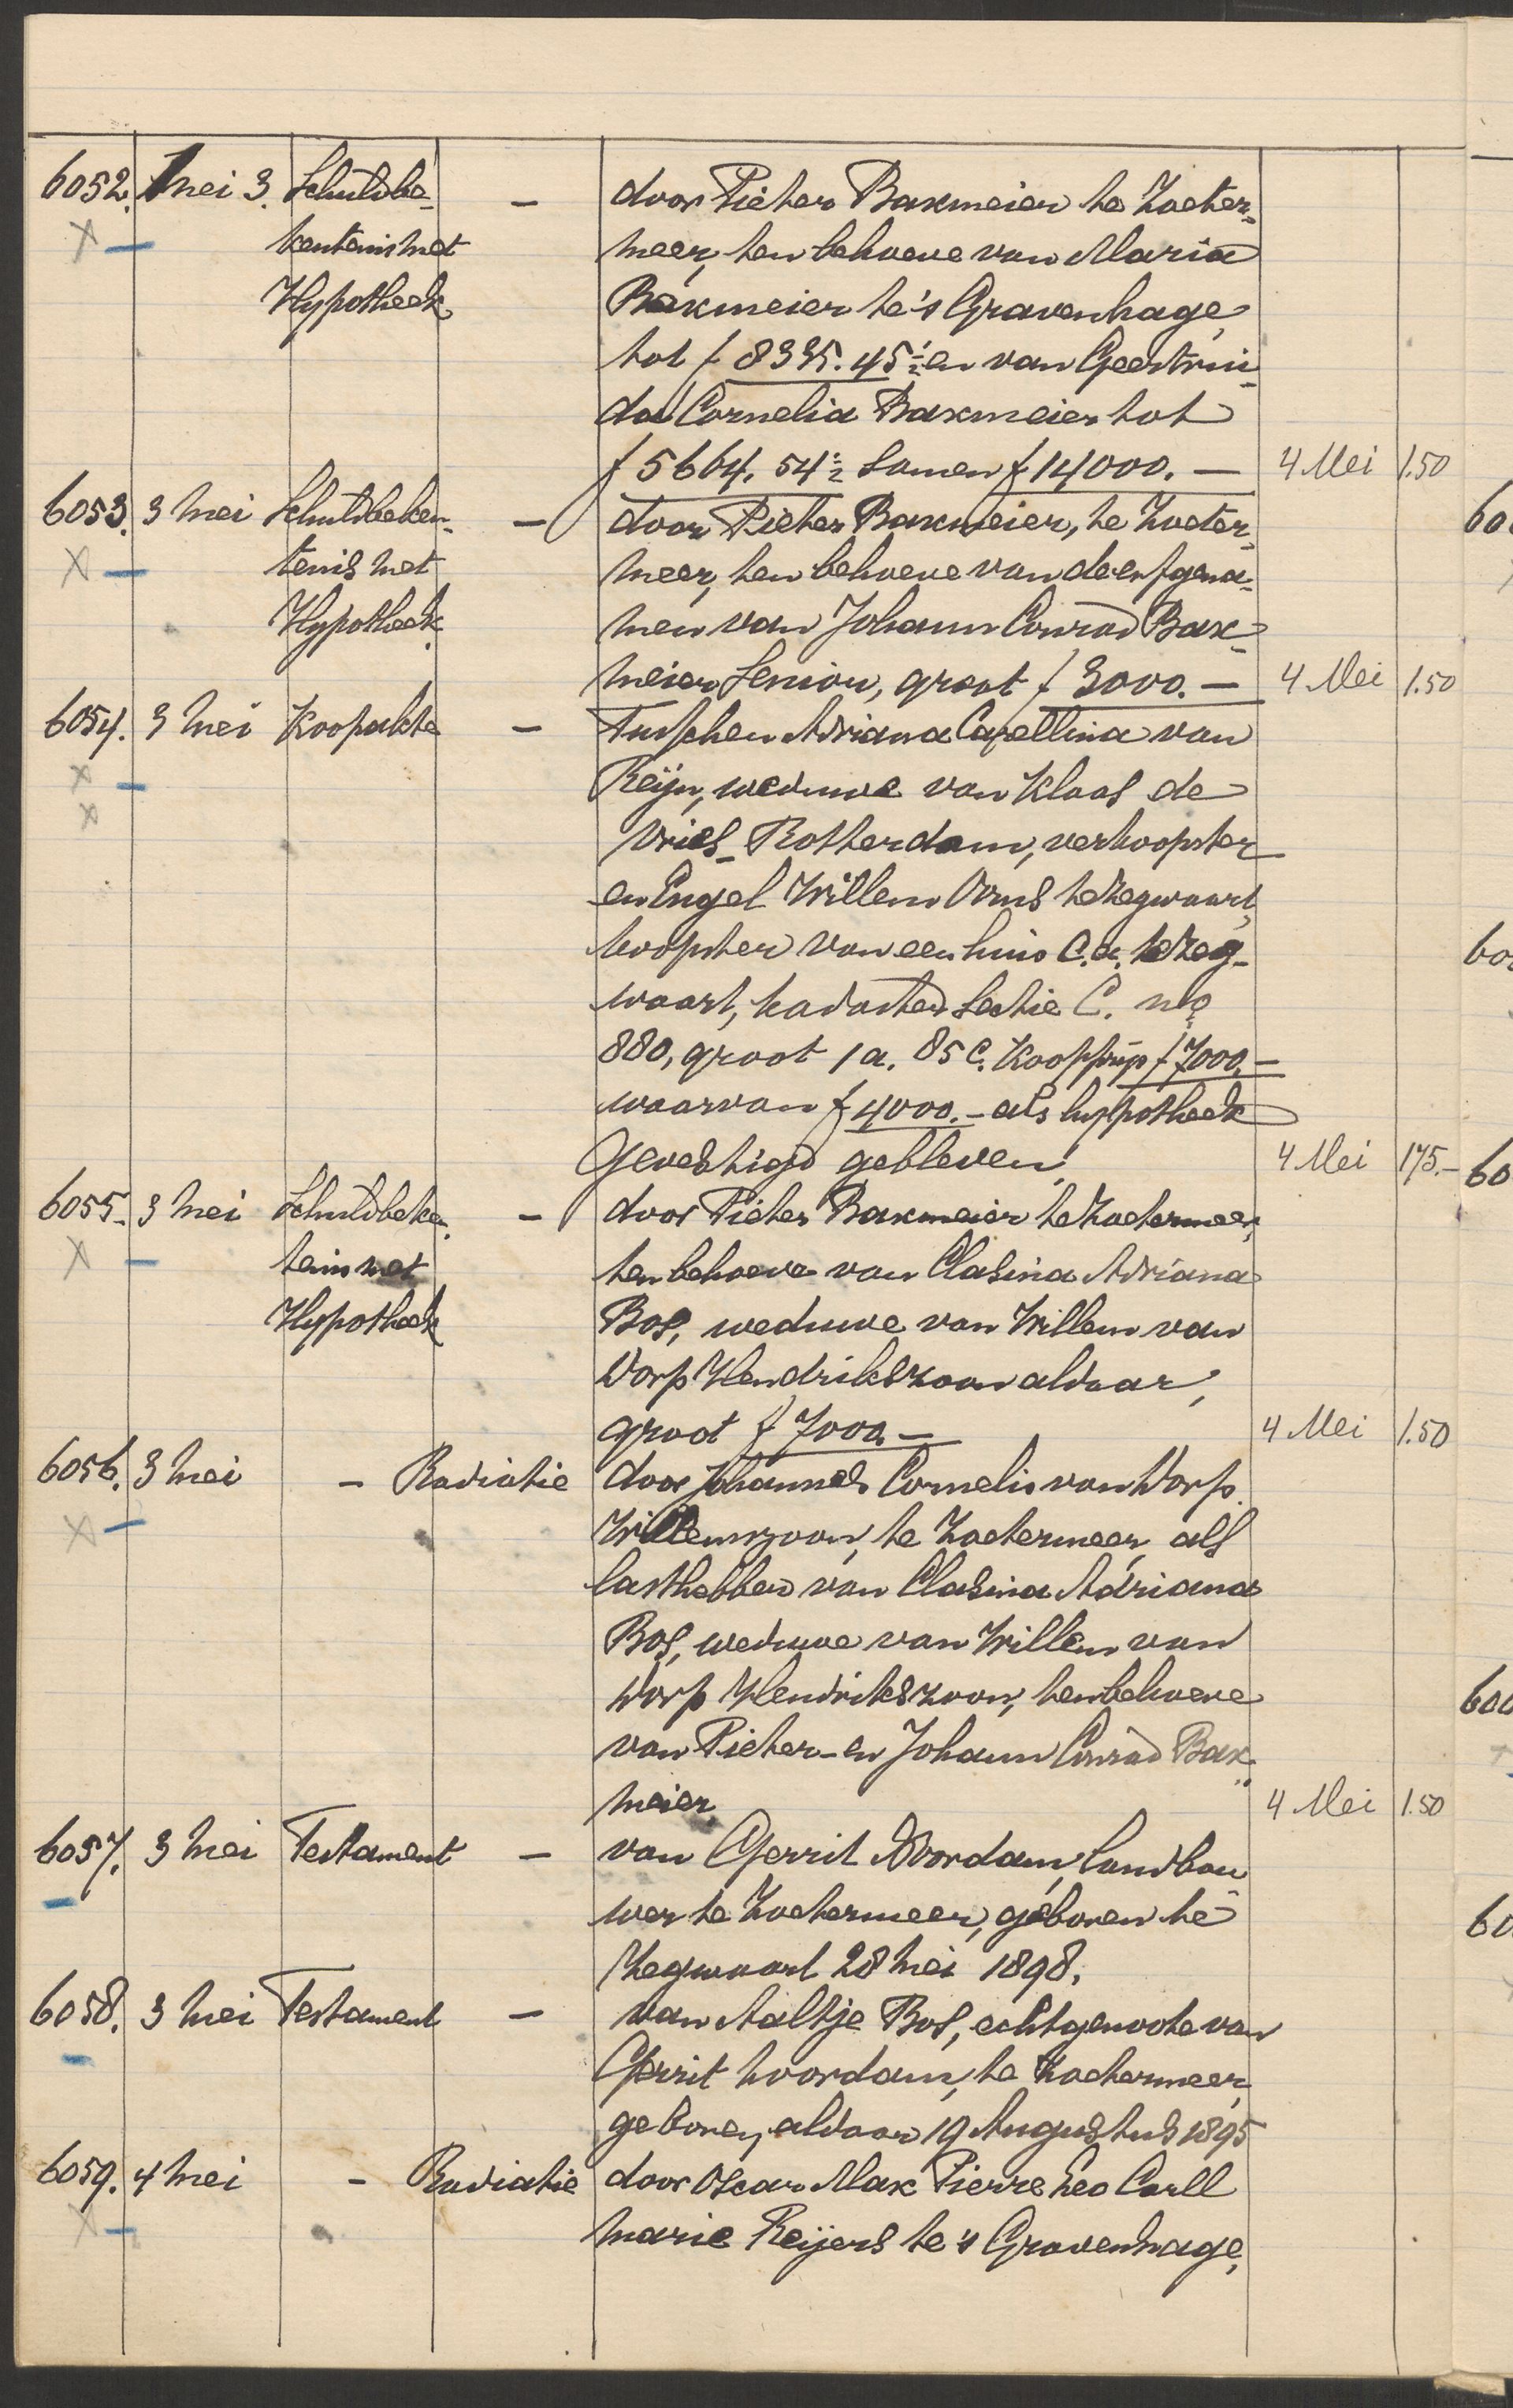 6052. Mei 3. Schuldbe- — door Pieter Baxmeier te Zoeter-
kentenis met meer, ten behoeve van Maria
Hypotheek Baxmeier te 's Gravenhage
tot f 8335.45½ en van Geertrui-
da Cornelia Baxmeier tot
f 5664.54½ samen f 14000.— 4 Mei 1.50
6053. 3 Mei Schuldbeken- — door Pieter Baxmeier, te Zoeter-
tenis met meer, ten behoeve van de erfgena-
Hypotheek men van Johann Conrad Bax-
meier Senior, groot f 3000.— 4 Mei 1.50
6054. 3 Mei Koopakte — Tusschen Adriana Capellina van
Reijn, weduwe van Klaas de
Vries Rotterdam, verkoopster
en Engel Willem Ooms te Zegwaart,
koopster van een huis c.a. te Zeg-
waart, kadaster Sectie C. no
880, groot 1 a. 85 c. Koopprijs f 7000.—
waarvan f 4000.— als hypotheek
gevestigd gebleven. 4 Mei 175.—
6055. 3 Mei Schuldbeken- — door Pieter Baxmeier te Zoetermeer,
tenis met ten behoeve van Clasina Adriana
Hypotheek Bos, weduwe van Willem van
Dorp Hendrikszoon aldaar,
groot f 7000.— 4 Mei 1.50
6056. 3 Mei — Radiatie door Johannes Cornelis van Dorp
Willemszoon, te Zoetermeer, als
lasthebber van Clasina Adriana
Bos, weduwe van Willem van
Dorp Hendrikszoon, ten behoeve
van Pieter- en Johann Conrad Bax-
meier, 4 Mei 1.50
6057. 3 Mei Testament — van Gerrit Noordam, landbou-
wer te Zoetermeer, geboren te
Zegwaart 28 Mei 1898.
6058. 3 Mei Testament — van Aaltje Bos, echtgenoote van
Gerrit Noordam, te Zoetermeer,
geboren aldaar 19 Augustus 1895
6059. 4 Mei — Radiatie door Oscar Max Pierre Leo Carll
Marie Reijers te 's Gravenhage,